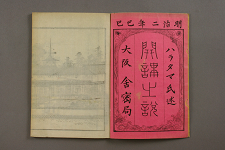 明治二年己巳
ハラタマ氏述
開講之説
大阪 舎密局